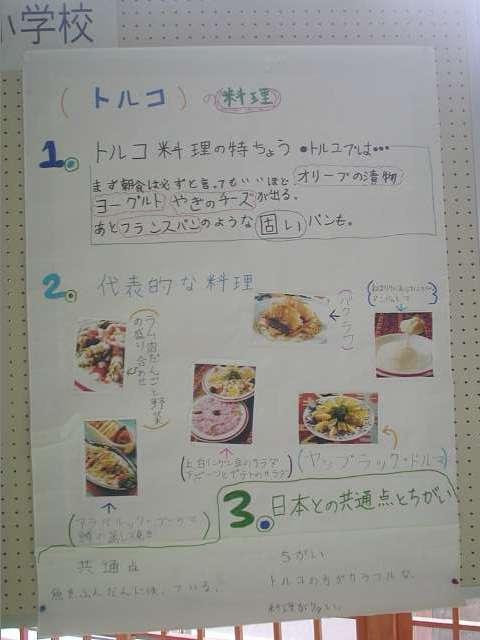 小学校
(トルコ)の料理
1. トルコ料理の特ちょう ●トルコでは…
まず朝食は必ずと言ってもいいほど オリーブの漬物
ヨーグルト やぎのチーズが出る。
あとフランスパンのような 固い パンも。
2. 代表的な料理
(バクラワ)
ラム肉だんごと野菜
の盛り合わせ
(上 白インゲン豆のサラダ
(ヤップラック・ドルマ)
3. 日本との共通点とちがい
共通点
ちがい
魚をふんだんに使っている。
トルコの方がカラフルな
料理が多い。